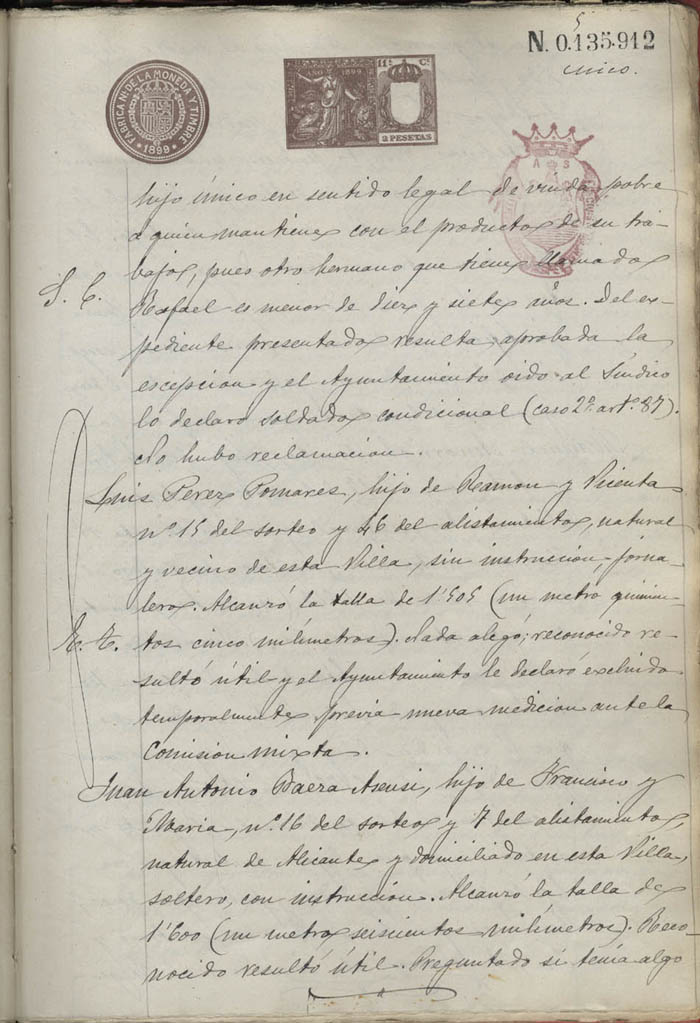 N. 0.135.912
5
unico.
FABRICA Nl. DE LA MONEDA Y TIMBRE
1899
11ª Cª
AÑO 1899
2 PESETAS
A S
hijo único en sentido legal de viuda pobre
a quien mantiene con el producto de su tra-
bajo, pues otro hermano que tiene llamado
S. C.
Rafael es menor de diez y siete años. Del ex-
pediente presentado resulta aprobada la
escepcion y el Ayuntamiento oido al Síndico
lo declaró soldado condicional (caso 2º artº 87).
No hubo reclamacion.
Luis Perez Pomares, hijo de Ramon y Vicenta
nº 15 del sorteo y 46 del alistamiento, natural
y vecino de esta Villa, sin instruccion, jorna-
lero. Alcanzó la talla de 1'505 (un metro quinien-
E. T.
tos cinco milímetros). Nada alegó; reconocido re-
sultó útil y el Ayuntamiento le declaró excluido
temporalmente previa nueva medicion ante la
Comision mixta.
Juan Antonio Baeza Asensi, hijo de Francisco y
Maria, nº 16 del sorteo y 7 del alistamiento,
natural de Alicante y domiciliado en esta Villa,
soltero, con instruccion. Alcanzó la talla de
1'600 (un metro seiscientos milímetros). Reco-
nocido resultó útil. Preguntado si tenía algo